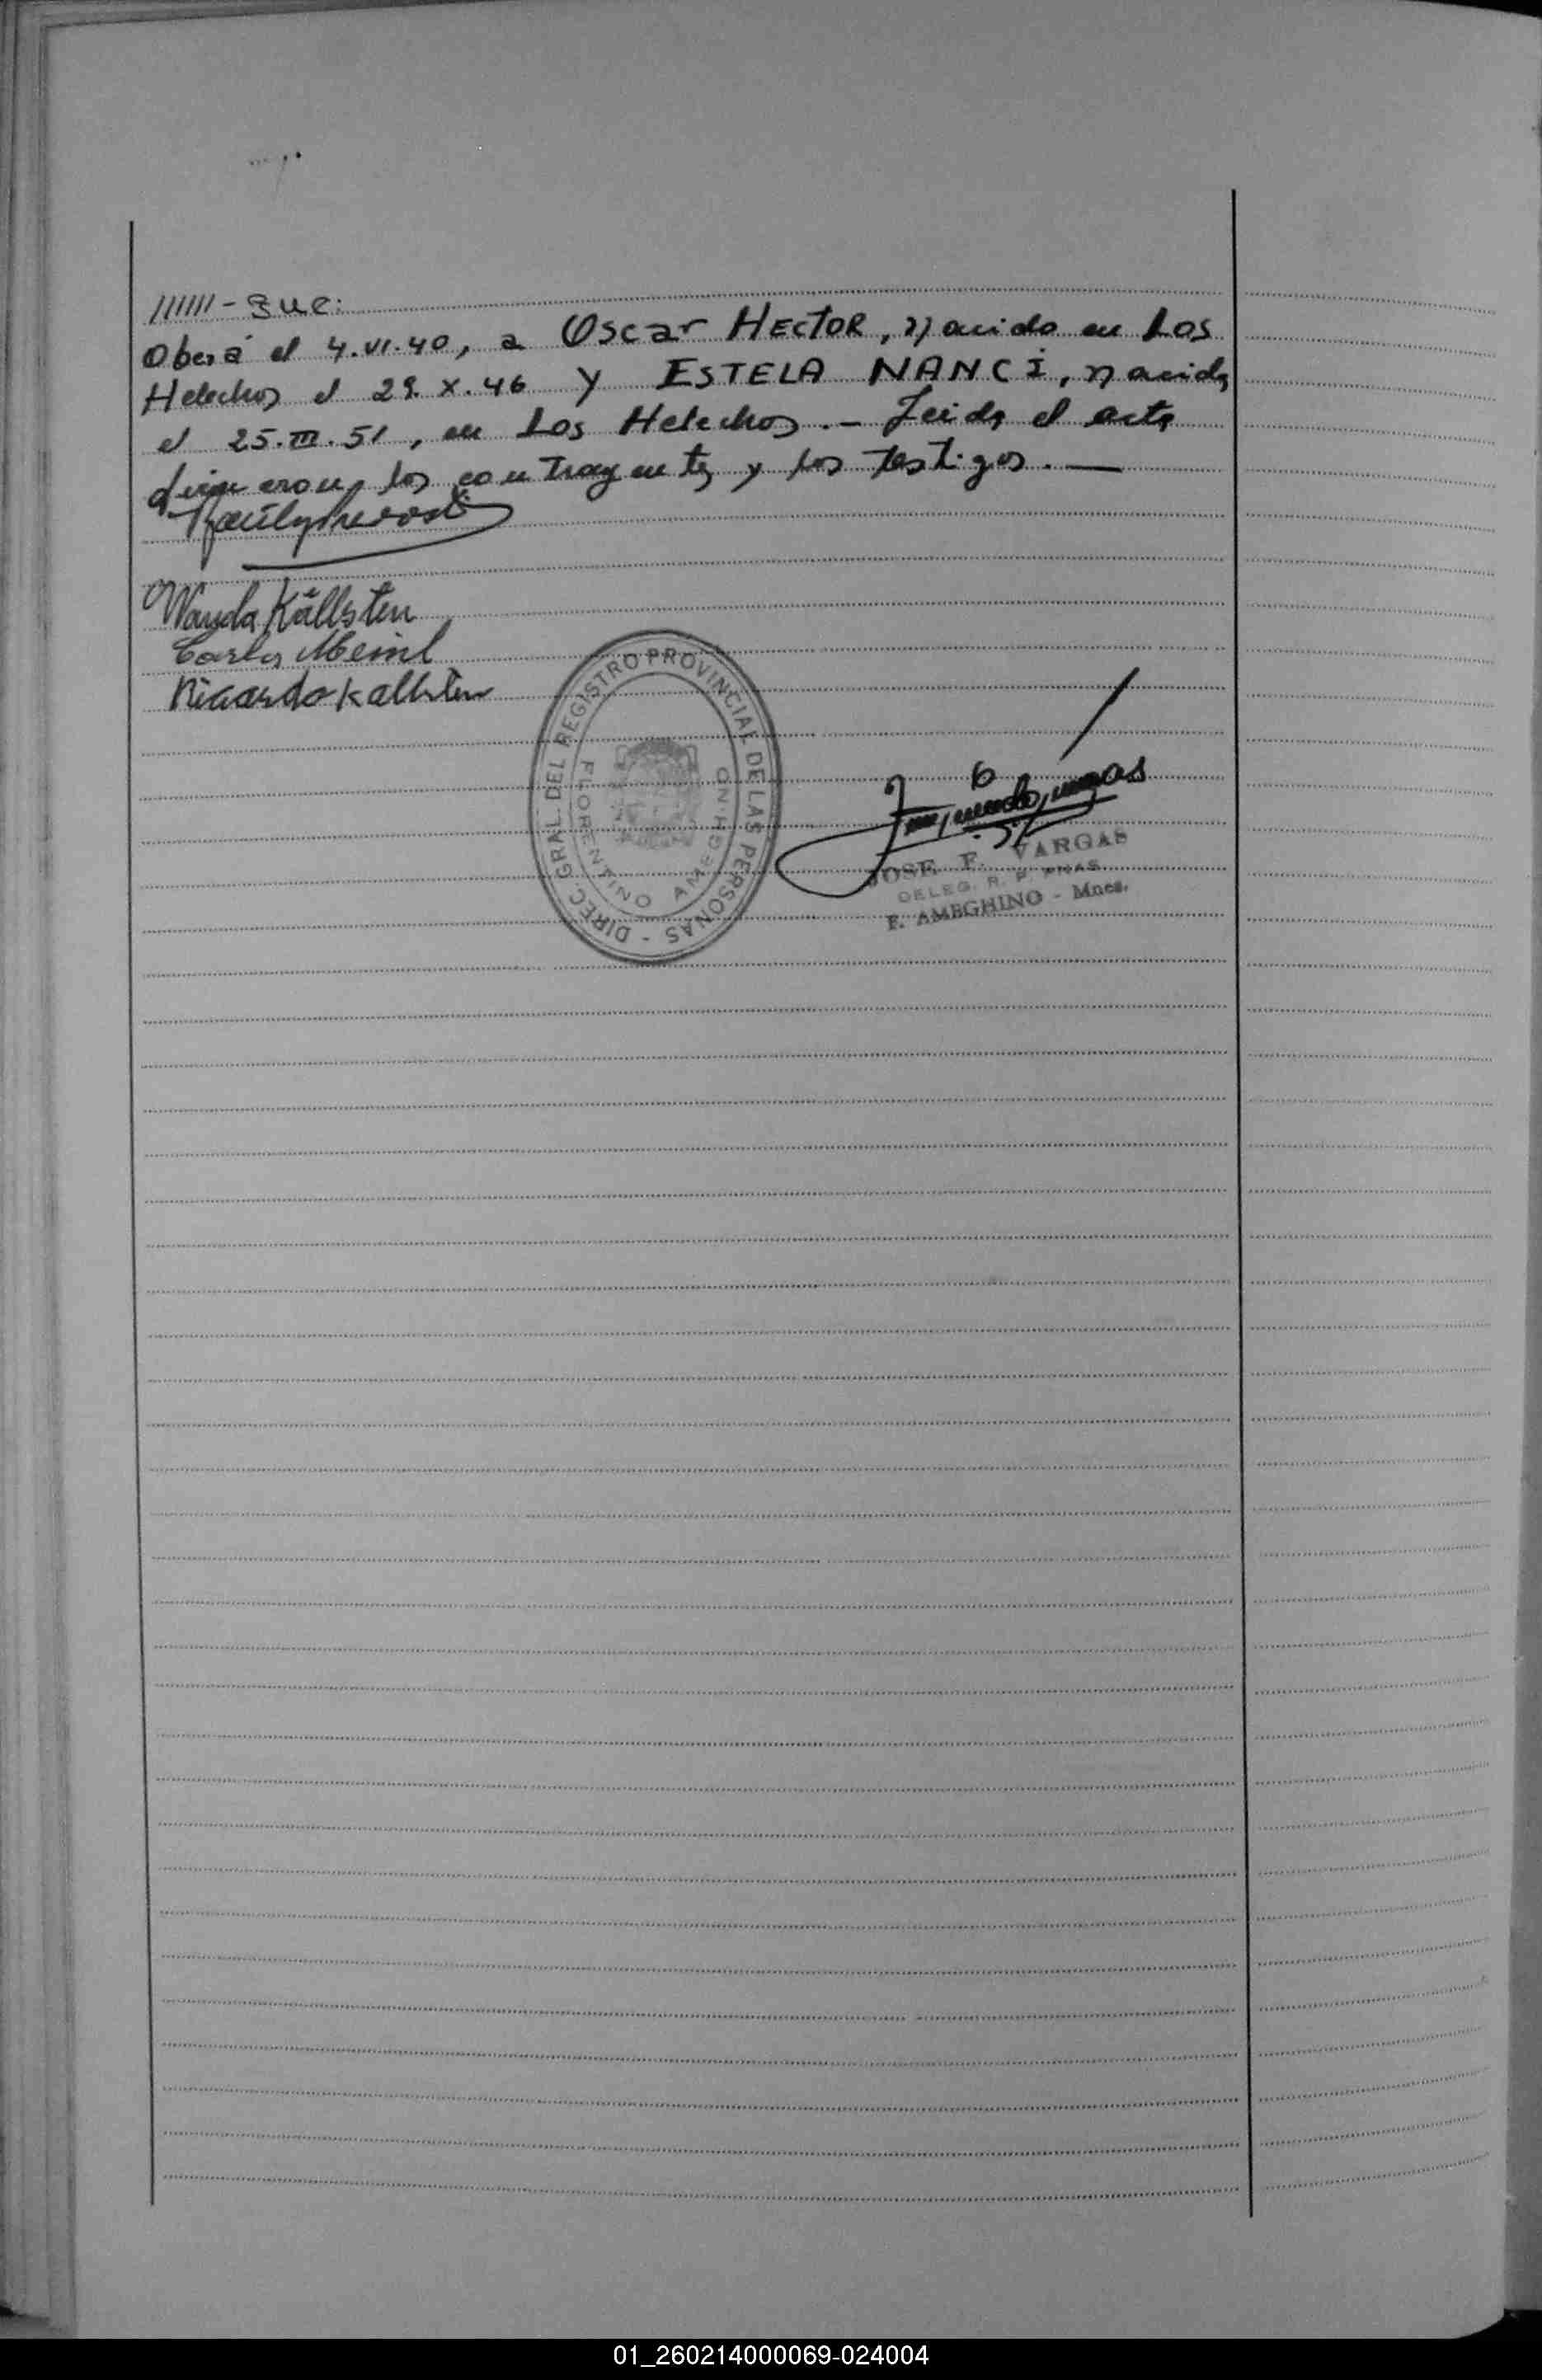 ///////-gue:
Oberá el 4.VI.40, a Oscar HECTOR, nacido en Los
Helechos el 29.X.46 y ESTELA NANCI, nacida
el 25.III.51, en Los Helechos.- Leida el acta
firmaron los contrayentes y los testigos.—
Wanda Källsten
Carlos Meinl
Ricardo Kallsten
DIREC. GRAL. DEL REGISTRO PROVINCIAL DE LAS PERSONAS -
FLORENTINO AMEGHINO
JOSE F. VARGAS
DELEG. R. P. PNAS.
F. AMEGHINO - Mnes.
01_260214000069-024004